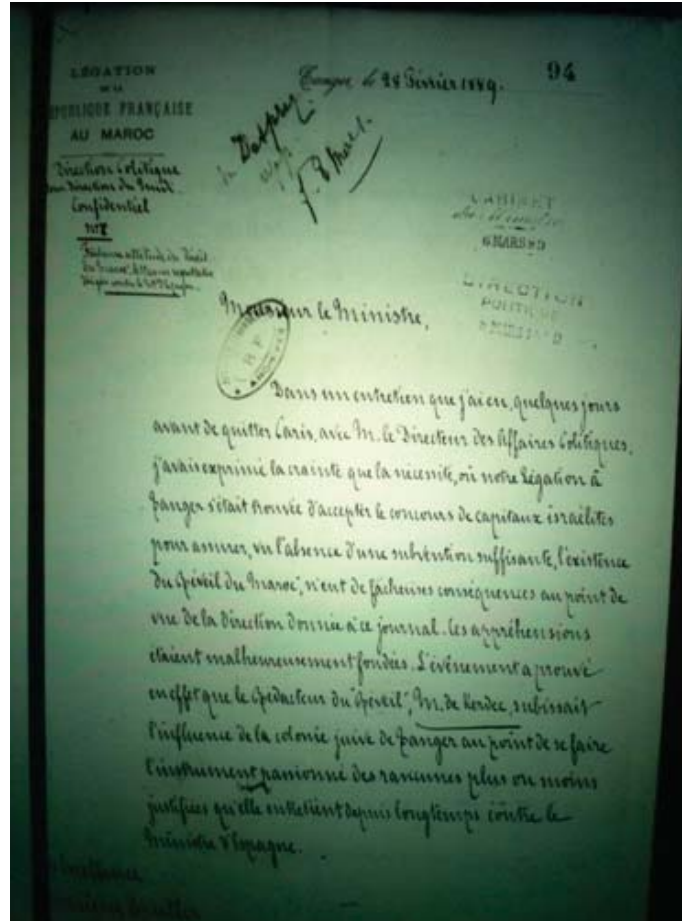 94
LÉGATION
DE LA
RÉPUBLIQUE FRANÇAISE
AU MAROC
Tanger, le 28 Février 1889.
Direction Politique
Sous Direction du Midi
Confidentiel
CABINET
du Ministre
6 MARS 89
DIRECTION
POLITIQUE
Monsieur le Ministre,
Dans un entretien que j'ai eu, quelques jours
avant de quitter Paris, avec M. le Directeur des Affaires Politiques,
j'avais exprimé la crainte que la nécessité, où notre Légation à
Tanger s'était trouvée d'accepter le concours de capitaux israélites
pour assurer, vu l'absence d'une subvention suffisante, l'existence
du "Réveil du Maroc", n'eut de fâcheuses conséquences au point de
vue de la direction donnée à ce journal. Ces appréhensions
étaient malheureusement fondées. L'événement a prouvé
en effet que le Rédacteur du "Réveil", M. de Kerdec, subissait
l'influence de la colonie juive de Tanger au point de se faire
l'instrument passionné des rancunes plus ou moins
justifiées qu'elle entretient depuis longtemps contre le
Ministre d'Espagne.